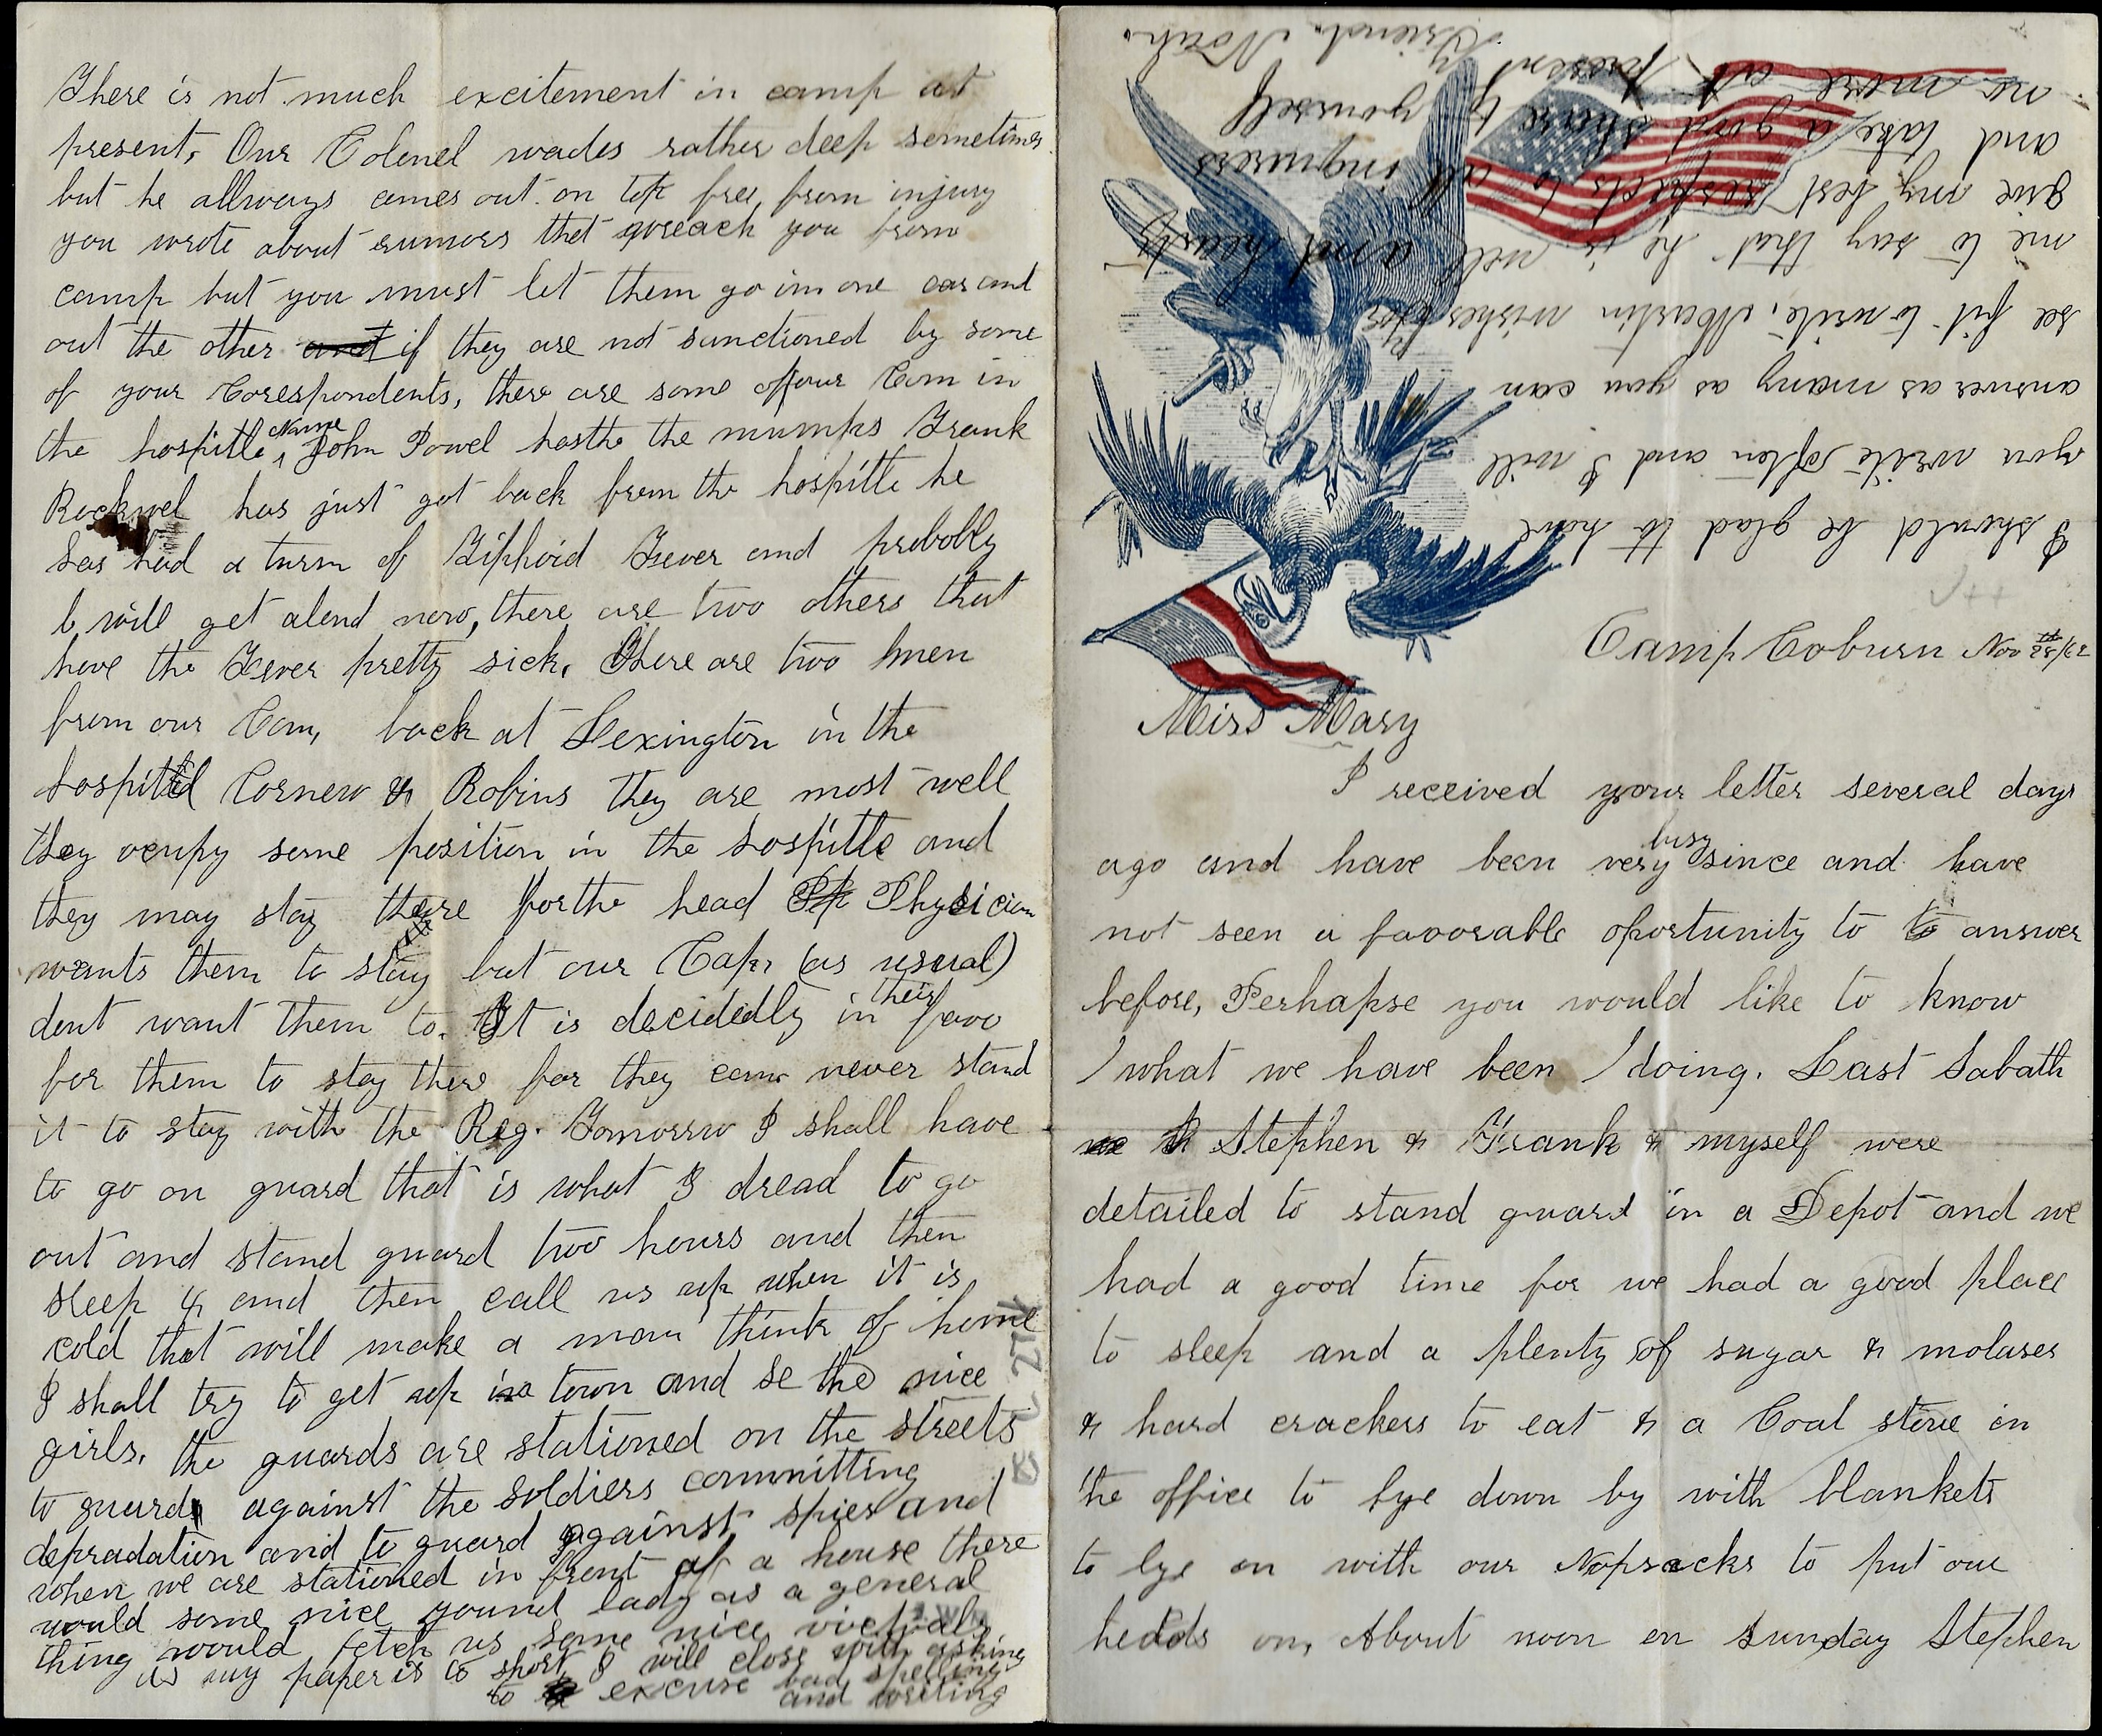 Camp Coburn Nov 28th/62
Miss Mary
I received your letter several days
ago and have been very busy since and have
not seen a favorable oportunity to to answer
before, Perhapse you would like to know
what we have been doing. Last Sabath
we Stephen & Frank & myself were
detailed to stand guard in a Depot and we
had a good time for we had a good place
to sleep and a plenty of sugar & molases
& hard crackers to eat & a Coal stove in
the office to lye down by with blankets
to lye on with our Napsacks to put our
heads on, About noon on Sunday Stephen
There is not much excitement in camp at
present, Our Colonel wades rather deep sometimes
but he allways comes out on top free from injury
you wrote about rumors that reach you from
camp but you must let them go in one ear and
out the other and if they are not sanctioned by some
of your Corespondents, there are some of our Com in
the hospitle, Name John Powel has the mumps Frank
Rockwel has just got back from the hospitle he
has had a turn of Tiphoid Fever and probobly
will get alond now, there are two others that
have the Fever pretty sick. There are two men
from our Com, back at Lexington in the
hospittd Cornew & Robins they are most well
they ocupy some position in the hospitle and
they may stay there for the head Ph Physician
wants them to stay but our Cap, (as usual)
dont want them to. It is decidedly in their favo
for them to stay there for they can never stand
it to stay with the Reg. Tomorrow I shall have
to go on guard that is what I dread to go
out and stand guard two hours and then
sleep 4 and then call us up when it is
cold that will make a man think of home
I shall try to get up in town and se the nice
girls. the guards are stationed on the streets
to guard against the soldiers committing
depradation and to guard against spies and
when we are stationed in front of a house there
would some nice yound lady as a general
thing would fetch us some nice victuals
as my paper is to short I will close with asking
to excuse bad spelling
and writing
I should be glad to have
you write often and I will
answer as many as you can
se fit to write, Martin wishes for
me to say that he is well and hearty
give my best respects to all inquirers
and take a good share to yourself
no more at present
Friend Noah.